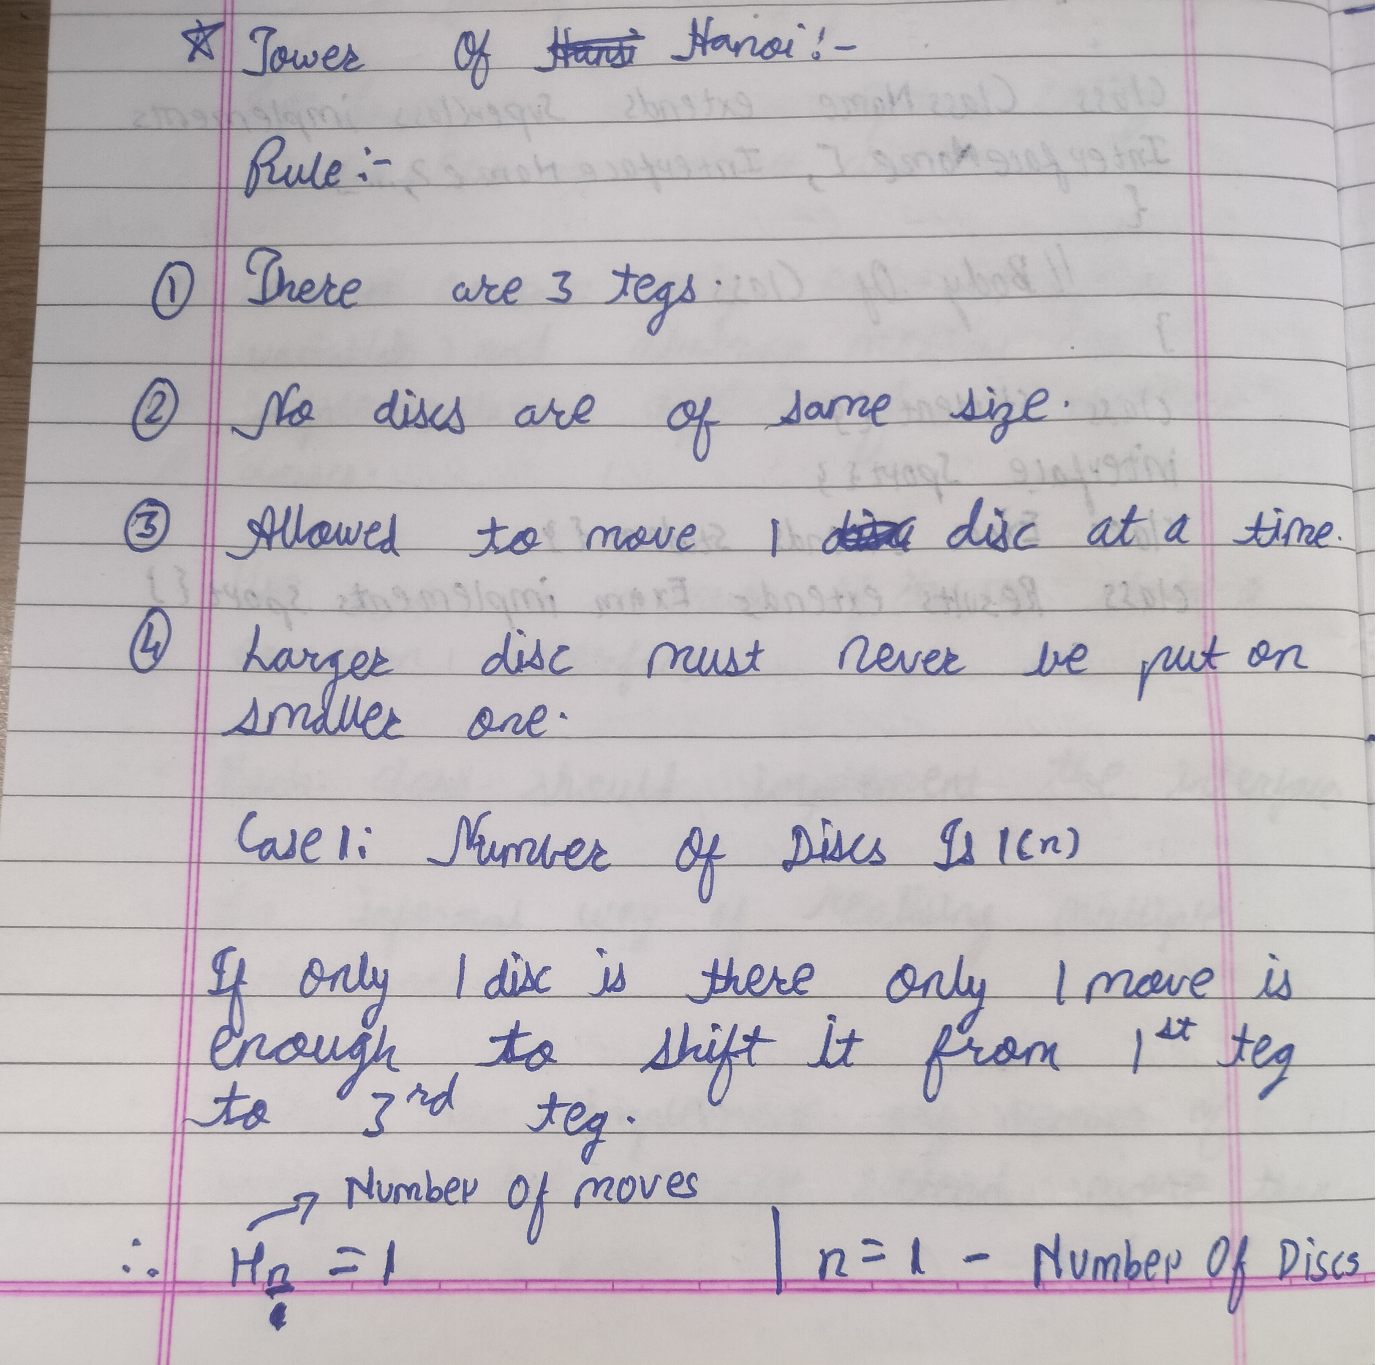 ☆ Tower Of Hanoi:-
Rule:-
① There are 3 tegs.
② No discs are of same size.
③ Allowed to move 1 disc at a time.
④ Larger disc must never be put on
smaller one.
Case 1: Number Of Discs Is 1(n)
If only 1 disc is there only 1 move is
enough to shift it from 1st teg
to 3rd teg.
→ Number Of moves
∴ Hn = 1 | n = 1 - Number Of Discs